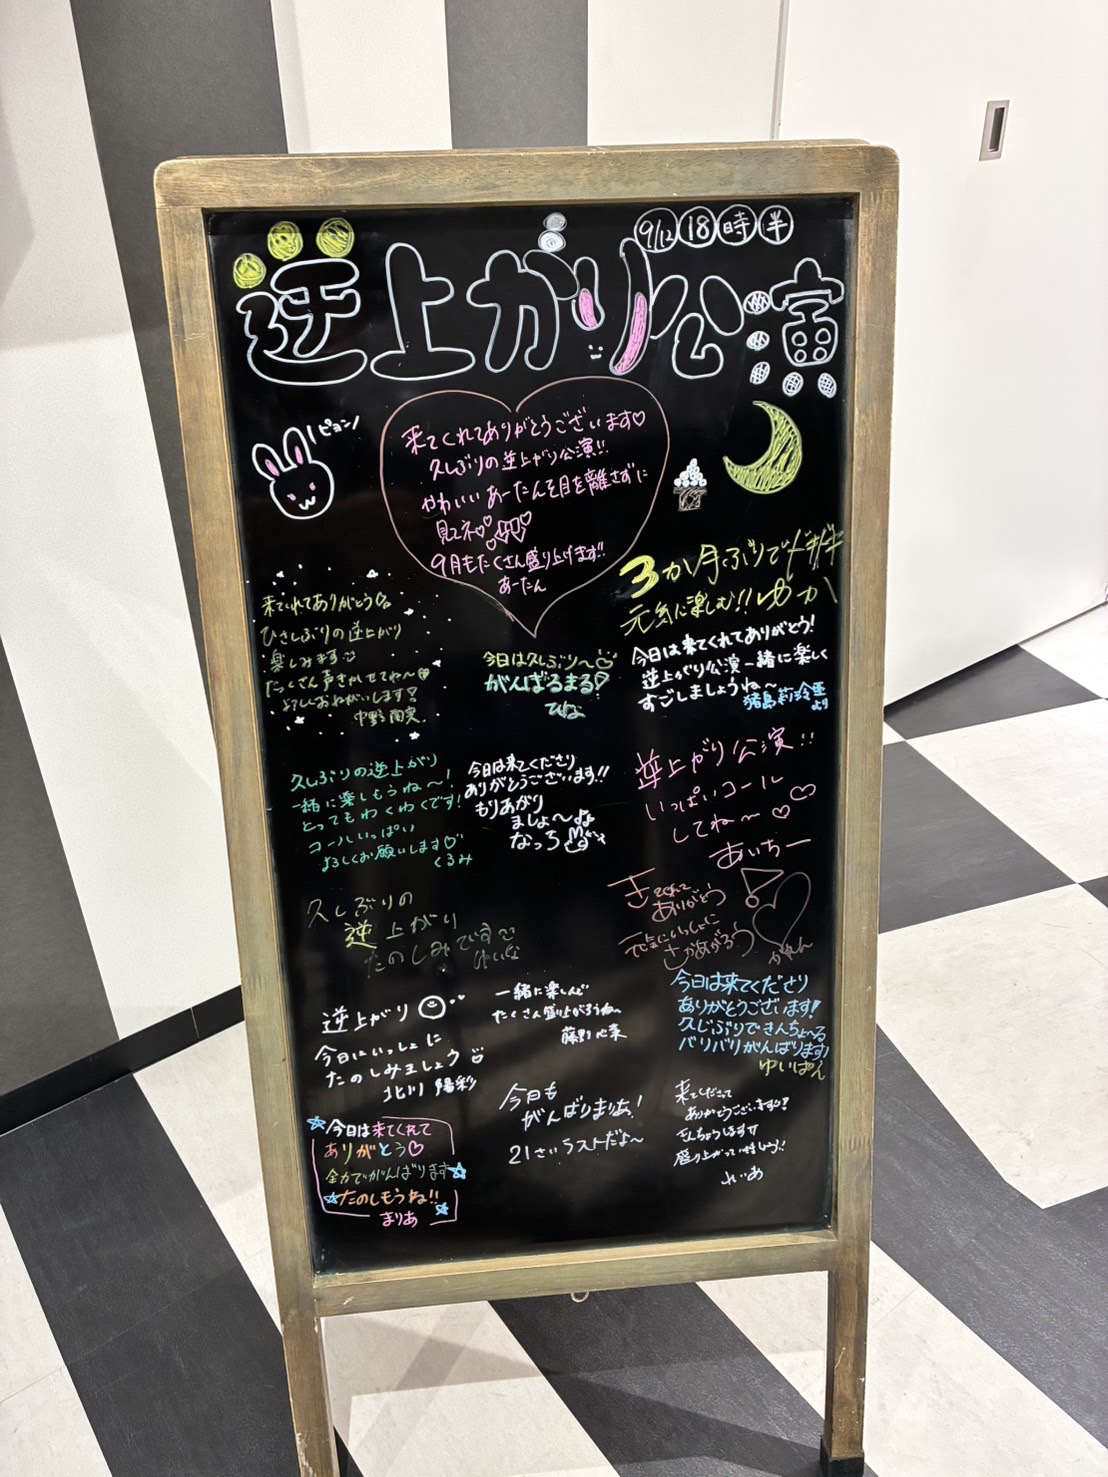 9/12 18時半
逆上がり公演
ピョン
来てくれてありがとうございます♡
久しぶりの逆上がり公演!!
かわいいあーたんを目を離さずに
見てネ♡♡
9月もたくさん盛り上げます!!
あーたん
3か月ぶりでドキドキ
元気に楽しむ!! ゆか
来てくれてありがとう
ひさしぶりの逆上がり
楽しみます
たっくさん声きかせてね〜
よろしくおねがいします!
今日は久しぶり〜♡
がんばるまる
ひな
今日は来てくれてありがとう!
逆上がり公演一緒に楽しく
すごしましょうね〜
猪島莉玲亜
より
久しぶりの逆上がり
一緒に楽しもうね〜!
とってもわくわくです!
コールいっぱい
よろしくお願いします♡
くるみ
今日は来てくださり
ありがとうございます!!
もりあがり
ましょ〜な
なっち
逆上がり公演!!
いっぱいコール
してね〜♡♡
あいちー
久しぶりの
逆上がり
たのしみです
ゆいな
きてくれて
ありがとう!
元気にいっしょに
さかあがろう
かれん
逆上がり
今日はいっしょに
たのしみましょう
北川 陽彩
一緒に楽しんで
たくさん盛り上がろうね〜
藤野心菜
今日は来てくださり
ありがとうございます!
久しぶりできんちょ〜る
バリバリがんばります!
ゆいぱん
今日も
がんばりまりあ!
21さいラストだよ〜
来てくださって
ありがとうございます!
きんちょうします
盛り上がって いきましょう!!
れいあ
今日は来てくれて
ありがとう♡
全力でがんばります
たのしもうね!!
まりあ